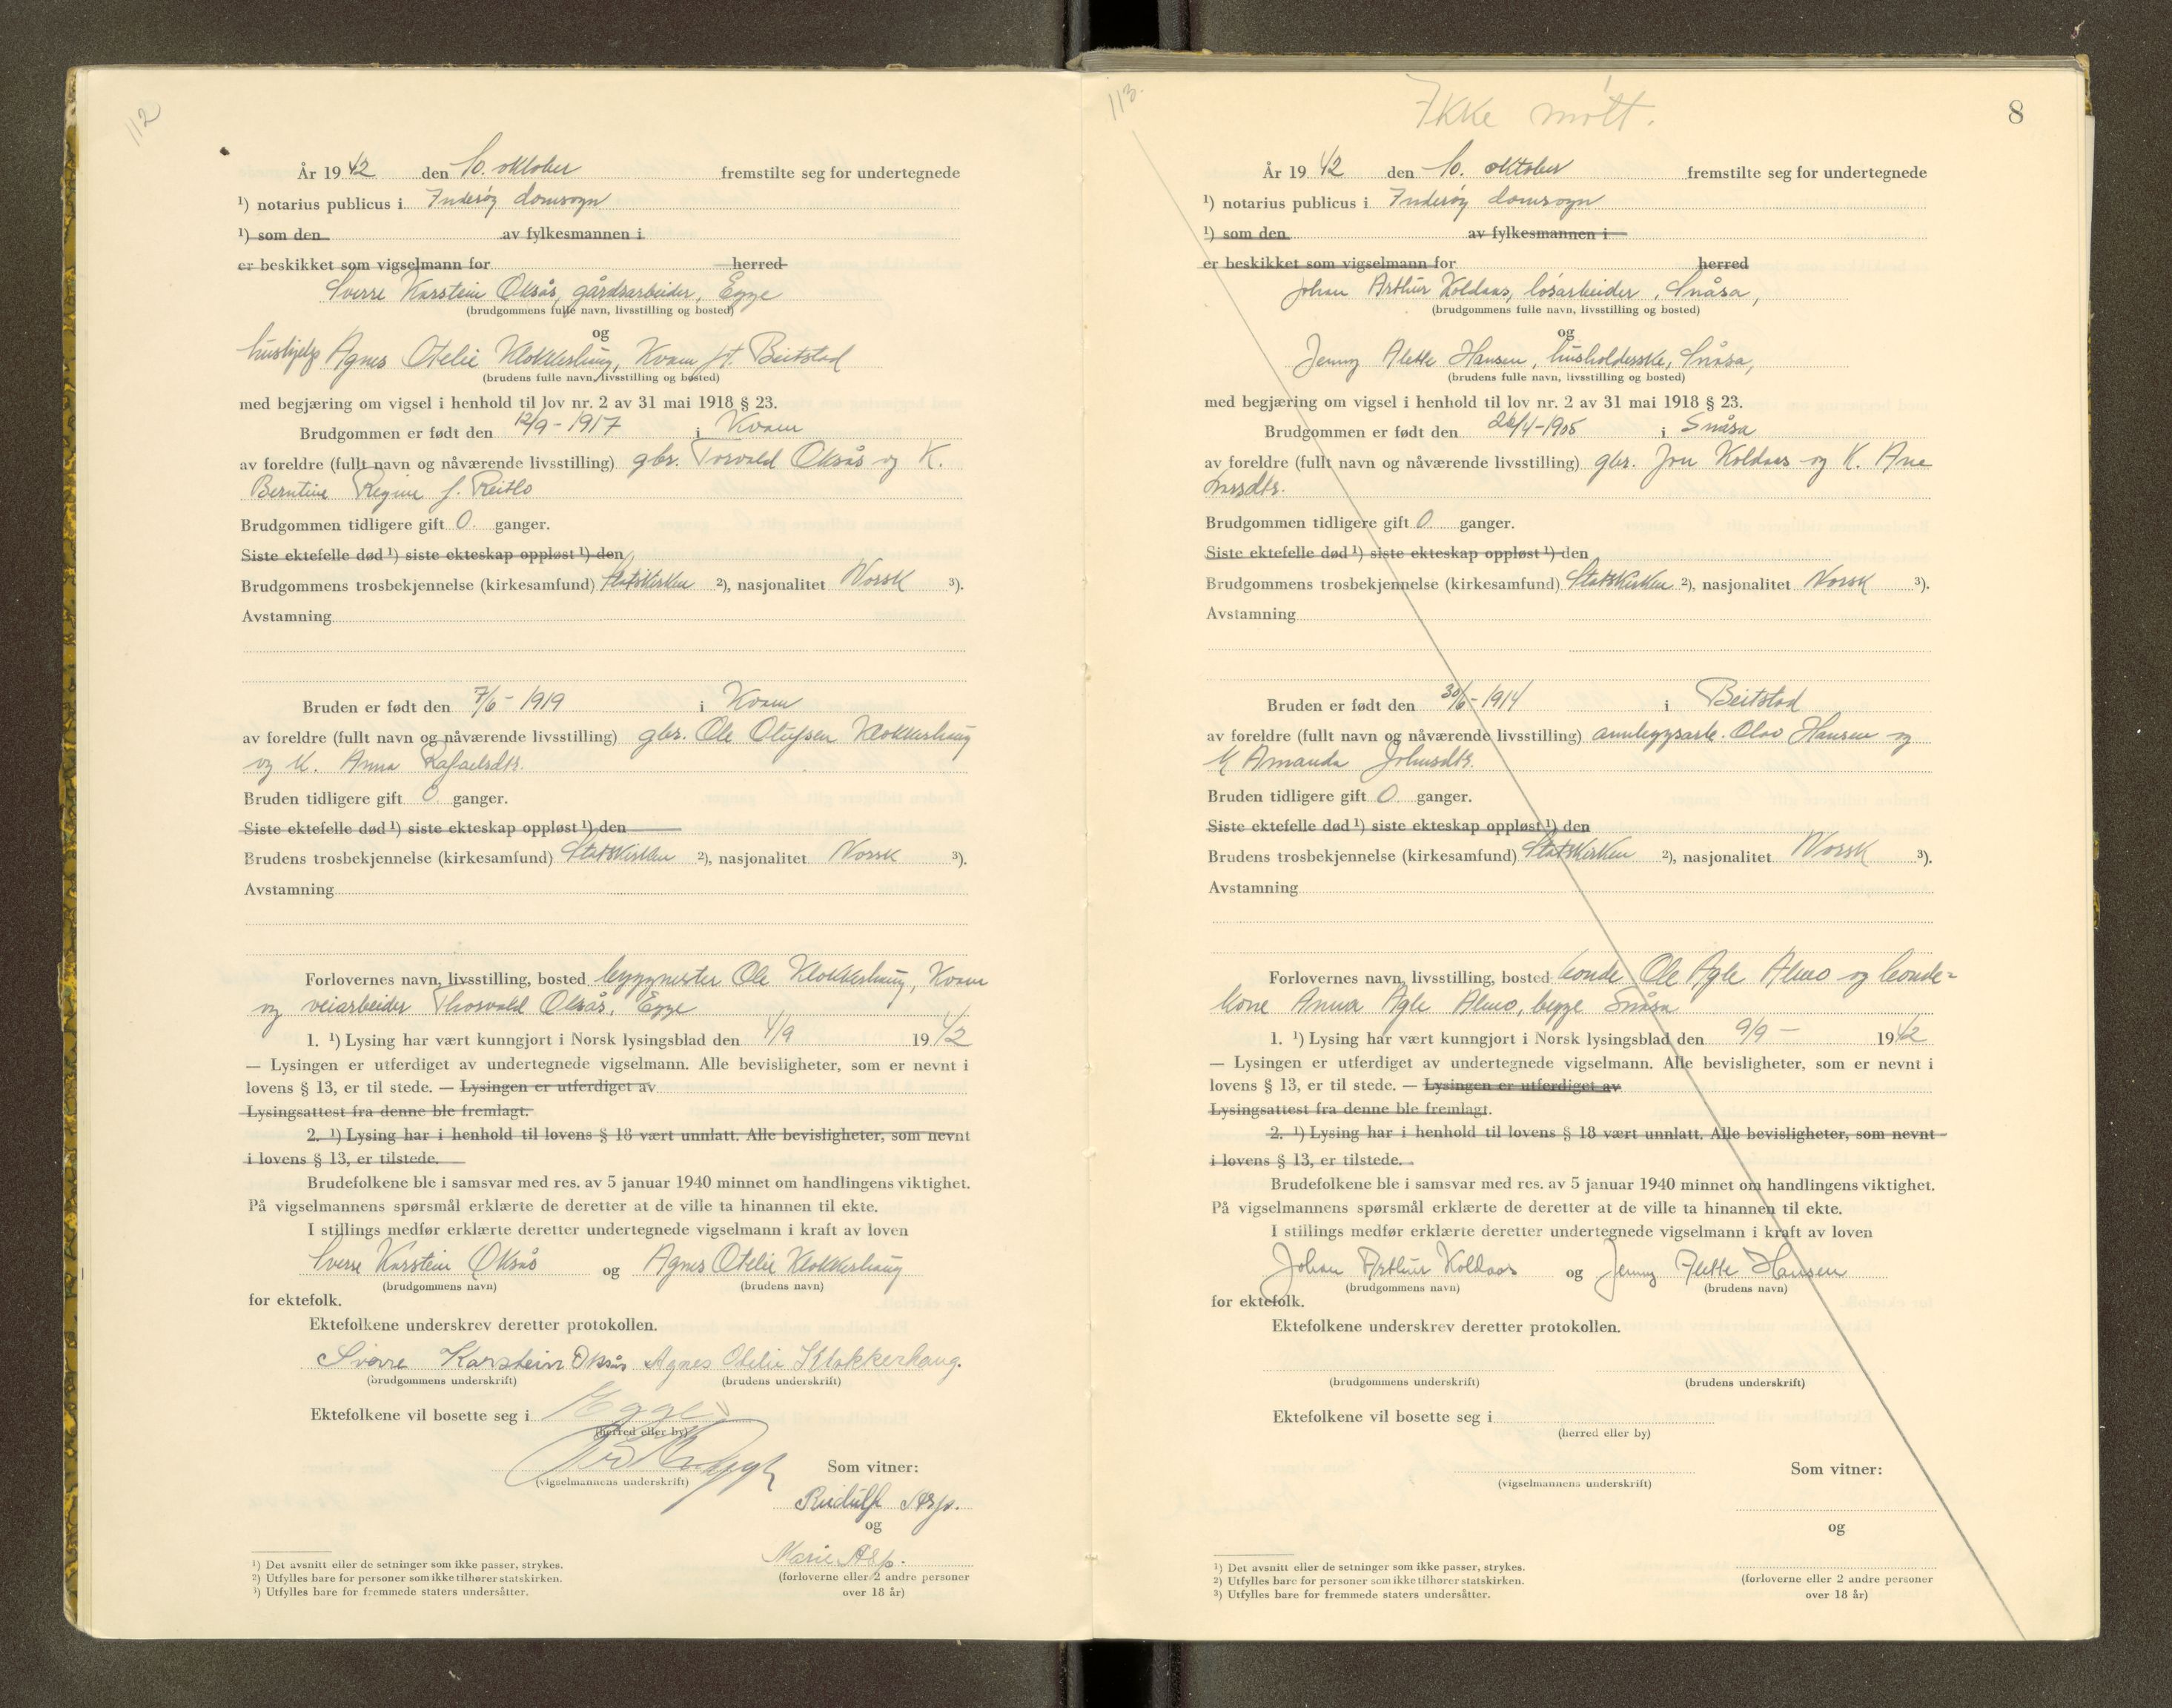 112
År 1942 den 10. oktober fremstilte seg for undertegnede
¹) notarius publicus i Inderøy domsogn
¹) som den av fylkesmannen i
er beskikket som vigselmann for herred
Sverre Karstein Oksås, gårdsarbeider, Egge
(brudgommens fulle navn, livsstilling og bosted)
og
hushjelp Agnes Otelie Klokkerhaug, Kvam pt. Beitstad
(brudens fulle navn, livsstilling og bosted)
med begjæring om vigsel i henhold til lov nr. 2 av 31 mai 1918 § 23.
Brudgommen er født den 12/9-1917 i Kvam
av foreldre (fullt navn og nåværende livsstilling) gbr. Torvald Oksås og K.
Berntine Regine f. Reitlo
Brudgommen tidligere gift 0. ganger.
Siste ektefelle død ¹) siste ekteskap oppløst ¹) den
Brudgommens trosbekjennelse (kirkesamfund) Statskirken ²), nasjonalitet Norsk ³).
Avstamning
Bruden er født den 7/6-1919 i Kvam
av foreldre (fullt navn og nåværende livsstilling) gbr. Ole Olufsen Klokkerhaug
og K. Anna Rafaelsdtr.
Bruden tidligere gift 0 ganger.
Siste ektefelle død ¹) siste ekteskap oppløst ¹) den
Brudens trosbekjennelse (kirkesamfund) Statskirken ²), nasjonalitet Norsk ³).
Avstamning
Forlovernes navn, livsstilling, bosted byggmester Ole Klokkerhaug, Kvam
og veiarbeider Thorvald Oksås, Egge
1. ¹) Lysing har vært kunngjort i Norsk lysingsblad den 4/9 1942
— Lysingen er utferdiget av undertegnede vigselmann. Alle bevisligheter, som er nevnt i
lovens § 13, er til stede. — Lysingen er utferdiget av
Lysingsattest fra denne ble fremlagt.
2. ¹) Lysing har i henhold til lovens § 18 vært unnlatt. Alle bevisligheter, som nevnt
i lovens § 13, er tilstede.
Brudefolkene ble i samsvar med res. av 5 januar 1940 minnet om handlingens viktighet.
På vigselmannens spørsmål erklærte de deretter at de ville ta hinannen til ekte.
I stillings medfør erklærte deretter undertegnede vigselmann i kraft av loven
Sverre Karstein Oksås og Agnes Otelie Klokkerhaug
(brudgommens navn) (brudens navn)
for ektefolk.
Ektefolkene underskrev deretter protokollen.
Sverre Karstein Oksås Agnes Otelie Klokkerhaug.
(brudgommens underskrift) (brudens underskrift)
Ektefolkene vil bosette seg i Egge
(herred eller by)
(vigselmannens underskrift)
Som vitner:
Rudulf Asp.
og
Marie Asp.
(forloverne eller 2 andre personer
over 18 år)
¹) Det avsnitt eller de setninger som ikke passer, strykes.
²) Utfylles bare for personer som ikke tilhører statskirken.
³) Utfylles bare for fremmede staters undersåtter.
113.
Ikke møtt.
8
År 1942 den 10. oktober fremstilte seg for undertegnede
¹) notarius publicus i Inderøy domsogn
¹) som den av fylkesmannen i
er beskikket som vigselmann for herred
Johan Arthur Koldaas, løsarbeider, Snåsa,
(brudgommens fulle navn, livsstilling og bosted)
og
Jenny Alette Hansen, husholderske, Snåsa,
(brudens fulle navn, livsstilling og bosted)
med begjæring om vigsel i henhold til lov nr. 2 av 31 mai 1918 § 23.
Brudgommen er født den 26/4-1905 i Snåsa
av foreldre (fullt navn og nåværende livsstilling) gbr. Jon Koldaas og K. Ane
Brudgommen tidligere gift 0 ganger.
Siste ektefelle død ¹) siste ekteskap oppløst ¹) den
Brudgommens trosbekjennelse (kirkesamfund) Statskirken ²), nasjonalitet Norsk ³).
Avstamning
Bruden er født den 30/6-1914 i Beitstad
av foreldre (fullt navn og nåværende livsstilling) anleggsarb. Olav Hansen og
K Amanda Johnsdtr.
Bruden tidligere gift 0 ganger.
Siste ektefelle død ¹) siste ekteskap oppløst ¹) den
Brudens trosbekjennelse (kirkesamfund) Statskirken ²), nasjonalitet Norsk ³).
Avstamning
Forlovernes navn, livsstilling, bosted bonde Ole Agle Almo og bonde-
kone Anna Agle Almo, begge Snåsa
1. ¹) Lysing har vært kunngjort i Norsk lysingsblad den 9/9 - 1942
— Lysingen er utferdiget av undertegnede vigselmann. Alle bevisligheter, som er nevnt i
lovens § 13, er til stede. — Lysingen er utferdiget av
Lysingsattest fra denne ble fremlagt.
2. ¹) Lysing har i henhold til lovens § 18 vært unnlatt. Alle bevisligheter, som nevnt
i lovens § 13, er tilstede.
Brudefolkene ble i samsvar med res. av 5 januar 1940 minnet om handlingens viktighet.
På vigselmannens spørsmål erklærte de deretter at de ville ta hinannen til ekte.
I stillings medfør erklærte deretter undertegnede vigselmann i kraft av loven
Johan Arthur Koldaas og Jenny Alette Hansen
(brudgommens navn) (brudens navn)
for ektefolk.
Ektefolkene underskrev deretter protokollen.
(brudgommens underskrift) (brudens underskrift)
Ektefolkene vil bosette seg i
(herred eller by)
(vigselmannens underskrift)
Som vitner:
og
(forloverne eller 2 andre personer
over 18 år)
¹) Det avsnitt eller de setninger som ikke passer, strykes.
²) Utfylles bare for personer som ikke tilhører statskirken.
³) Utfylles bare for fremmede staters undersåtter.